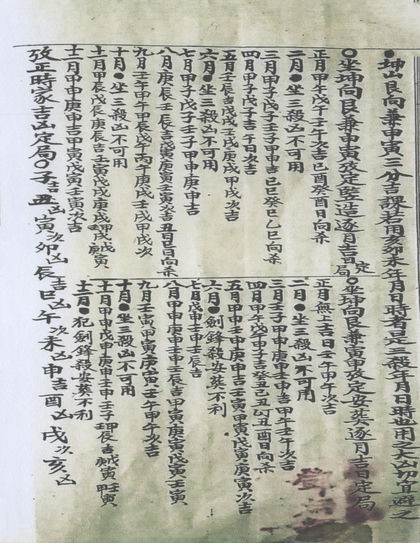 坤山艮向兼申寅三分吉課若用亥卯未年月日時者是三殺年月日時也用之大凶切宜避之
坐坤向艮兼申寅改定竪造逐月吉日定局
正月甲午戊午壬午次吉己酉癸酉日向杀
二月坐三殺凶不可用
三月甲子戊子壬子甲申吉己巳癸巳乙巳向杀
四月甲子戊子庚子吉丙子日次吉
五月
六月坐三殺凶不可用
七月甲子戊子庚子壬子甲申庚申吉
八月庚辰壬辰吉戊寅庚寅壬寅次吉丑日日向杀
九月壬午甲午甲辰戊午丙午庚戌壬戌甲戌次
十月坐三殺凶不可用
十一月甲辰戊辰庚辰吉壬寅戊戌庚戌甲寅
十二月甲申庚申吉丙申甲寅戊寅壬寅次吉
坐坤向艮兼申寅改定安葬逐月吉日定局
正月無上吉日壬午丙午次吉
二月坐三殺凶不可用
三月壬子甲申庚申吉甲午壬午次吉
四月甲午戊子吉乙丑己丑丁丑酉日向杀
五月甲申壬申庚申吉壬寅甲寅戊寅庚寅次吉
六月劍鋒殺安葬不利
七月甲申戊申壬子壬辰吉
八月甲申庚申壬申壬辰吉甲寅庚寅戊寅壬寅
九月壬寅甲寅庚寅壬午甲午次吉
十月坐三殺凶不可用
十一月甲申壬申壬子甲辰吉甲寅
十二月犯劍鋒殺安葬不利
改正時家吉凶定局子吉丑凶寅次卯凶辰吉巳凶午次未凶申吉酉凶戌次亥凶